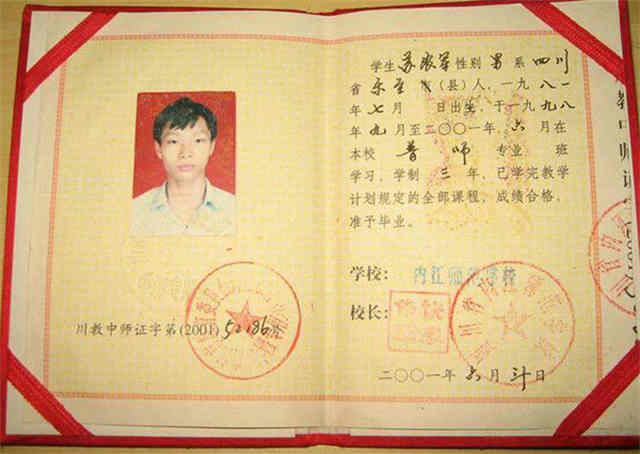 川教中师证字第(2001)52186号
学生 苏 军 性别 男 系 四川
省 乐至 市(县)人,一九八一
年 七 月 日出生,于一九九八
年 九 月至二〇〇一年 六 月在
本校 普师 专业 班
学习,学制 三 年,已学完教学
计划规定的全部课程,成绩合格,
准予毕业。
学校: 内江师范学校
校长:
二〇〇一年 六 月 日